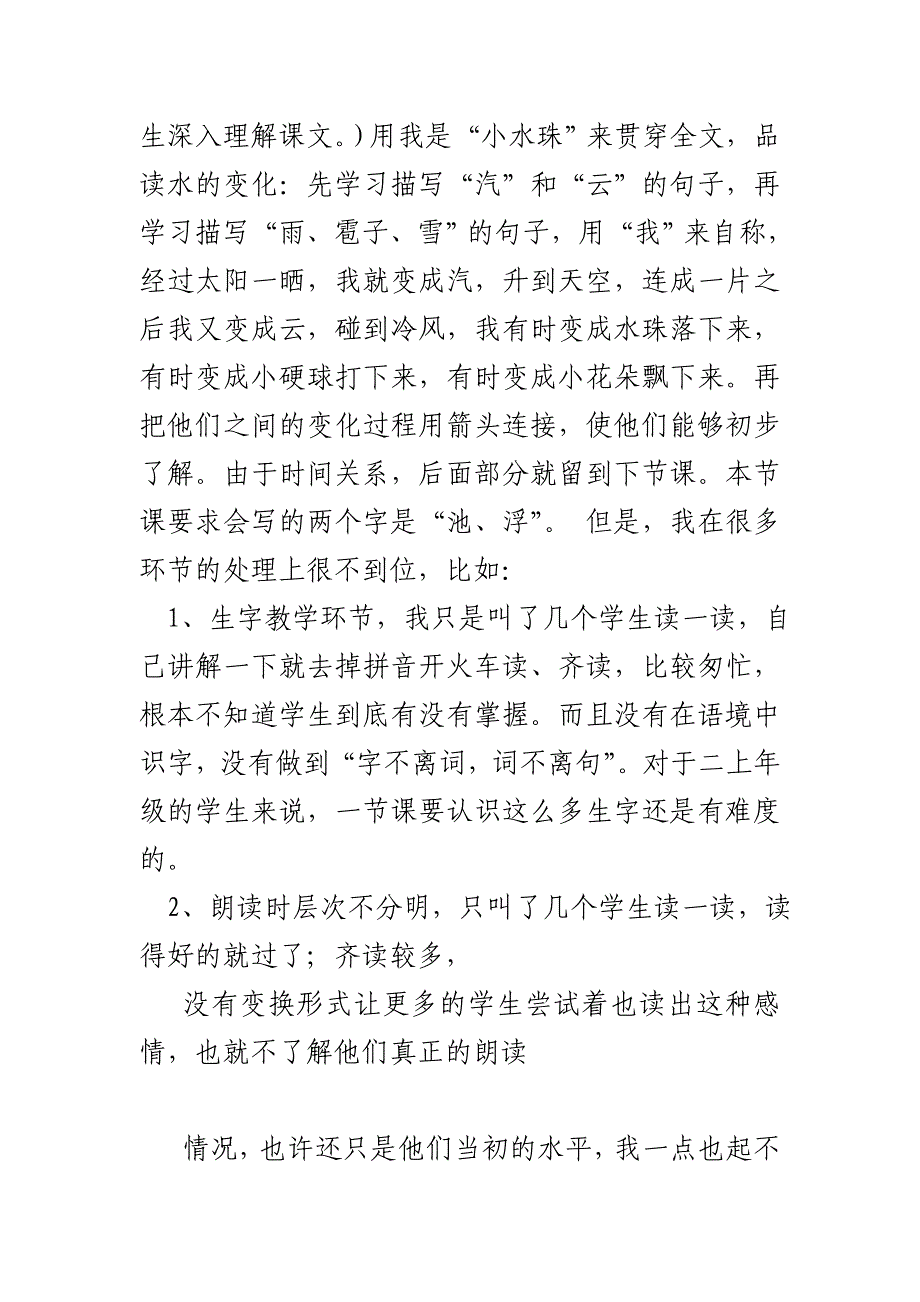 生深入理解课文。)用我是“小水珠”来贯穿全文，品
读水的变化：先学习描写“汽”和“云”的句子，再
学习描写“雨、雹子、雪”的句子，用“我”来自称，
经过太阳一晒，我就变成汽，升到天空，连成一片之
后我又变成云，碰到冷风，我有时变成水珠落下来，
有时变成小硬球打下来，有时变成小花朵飘下来。再
把他们之间的变化过程用箭头连接，使他们能够初步
了解。由于时间关系，后面部分就留到下节课。本节
课要求会写的两个字是“池、浮”。 但是，我在很多
环节的处理上很不到位，比如：
1、生字教学环节，我只是叫了几个学生读一读，自
己讲解一下就去掉拼音开火车读、齐读，比较匆忙，
根本不知道学生到底有没有掌握。而且没有在语境中
识字，没有做到“字不离词，词不离句”。对于二上年
级的学生来说，一节课要认识这么多生字还是有难度
的。
2、朗读时层次不分明，只叫了几个学生读一读，读
得好的就过了；齐读较多，
没有变换形式让更多的学生尝试着也读出这种感
情，也就不了解他们真正的朗读
情况，也许还只是他们当初的水平，我一点也起不